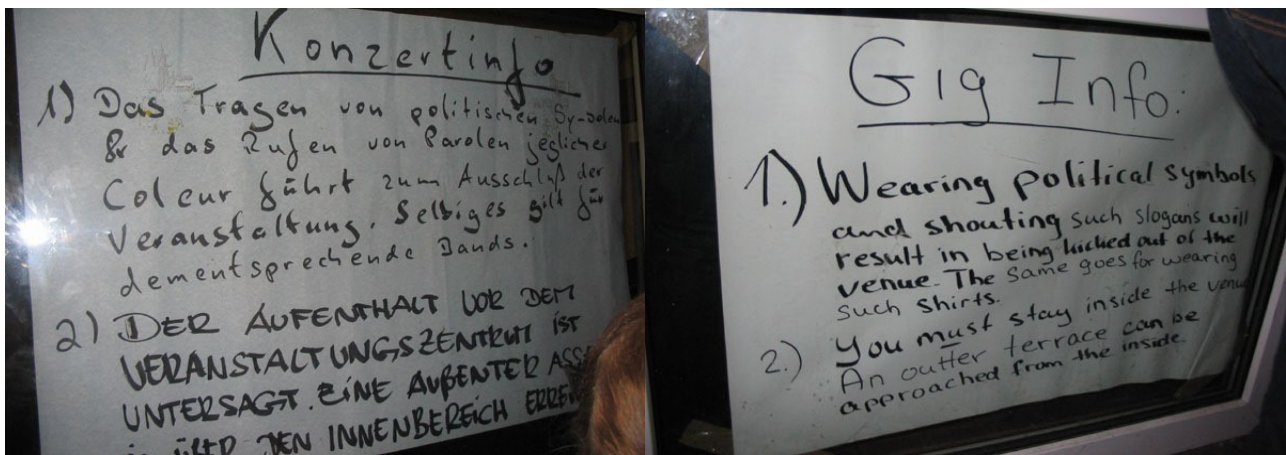 Konzertinfo
1) Das Tragen von politischen Symbolen
& das Rufen von Parolen jeglicher
Coleur führt zum Ausschluß der
Veranstaltung. Selbiges gilt für
dementsprechende Bands.
2) DER AUFENTHALT VOR DEM
VERANSTALTUNGSZENTRUM IST
UNTERSAGT. EINE AUßENTERASS
ÜBER DEN INNENBEREICH ERREI
Gig Info:
1.) Wearing political symbols
and shouting such slogans will
result in being kicked out of the
venue. The same goes for wearing
such shirts.
2.) You must stay inside the venue
An outter terrace can be
approached from the inside.